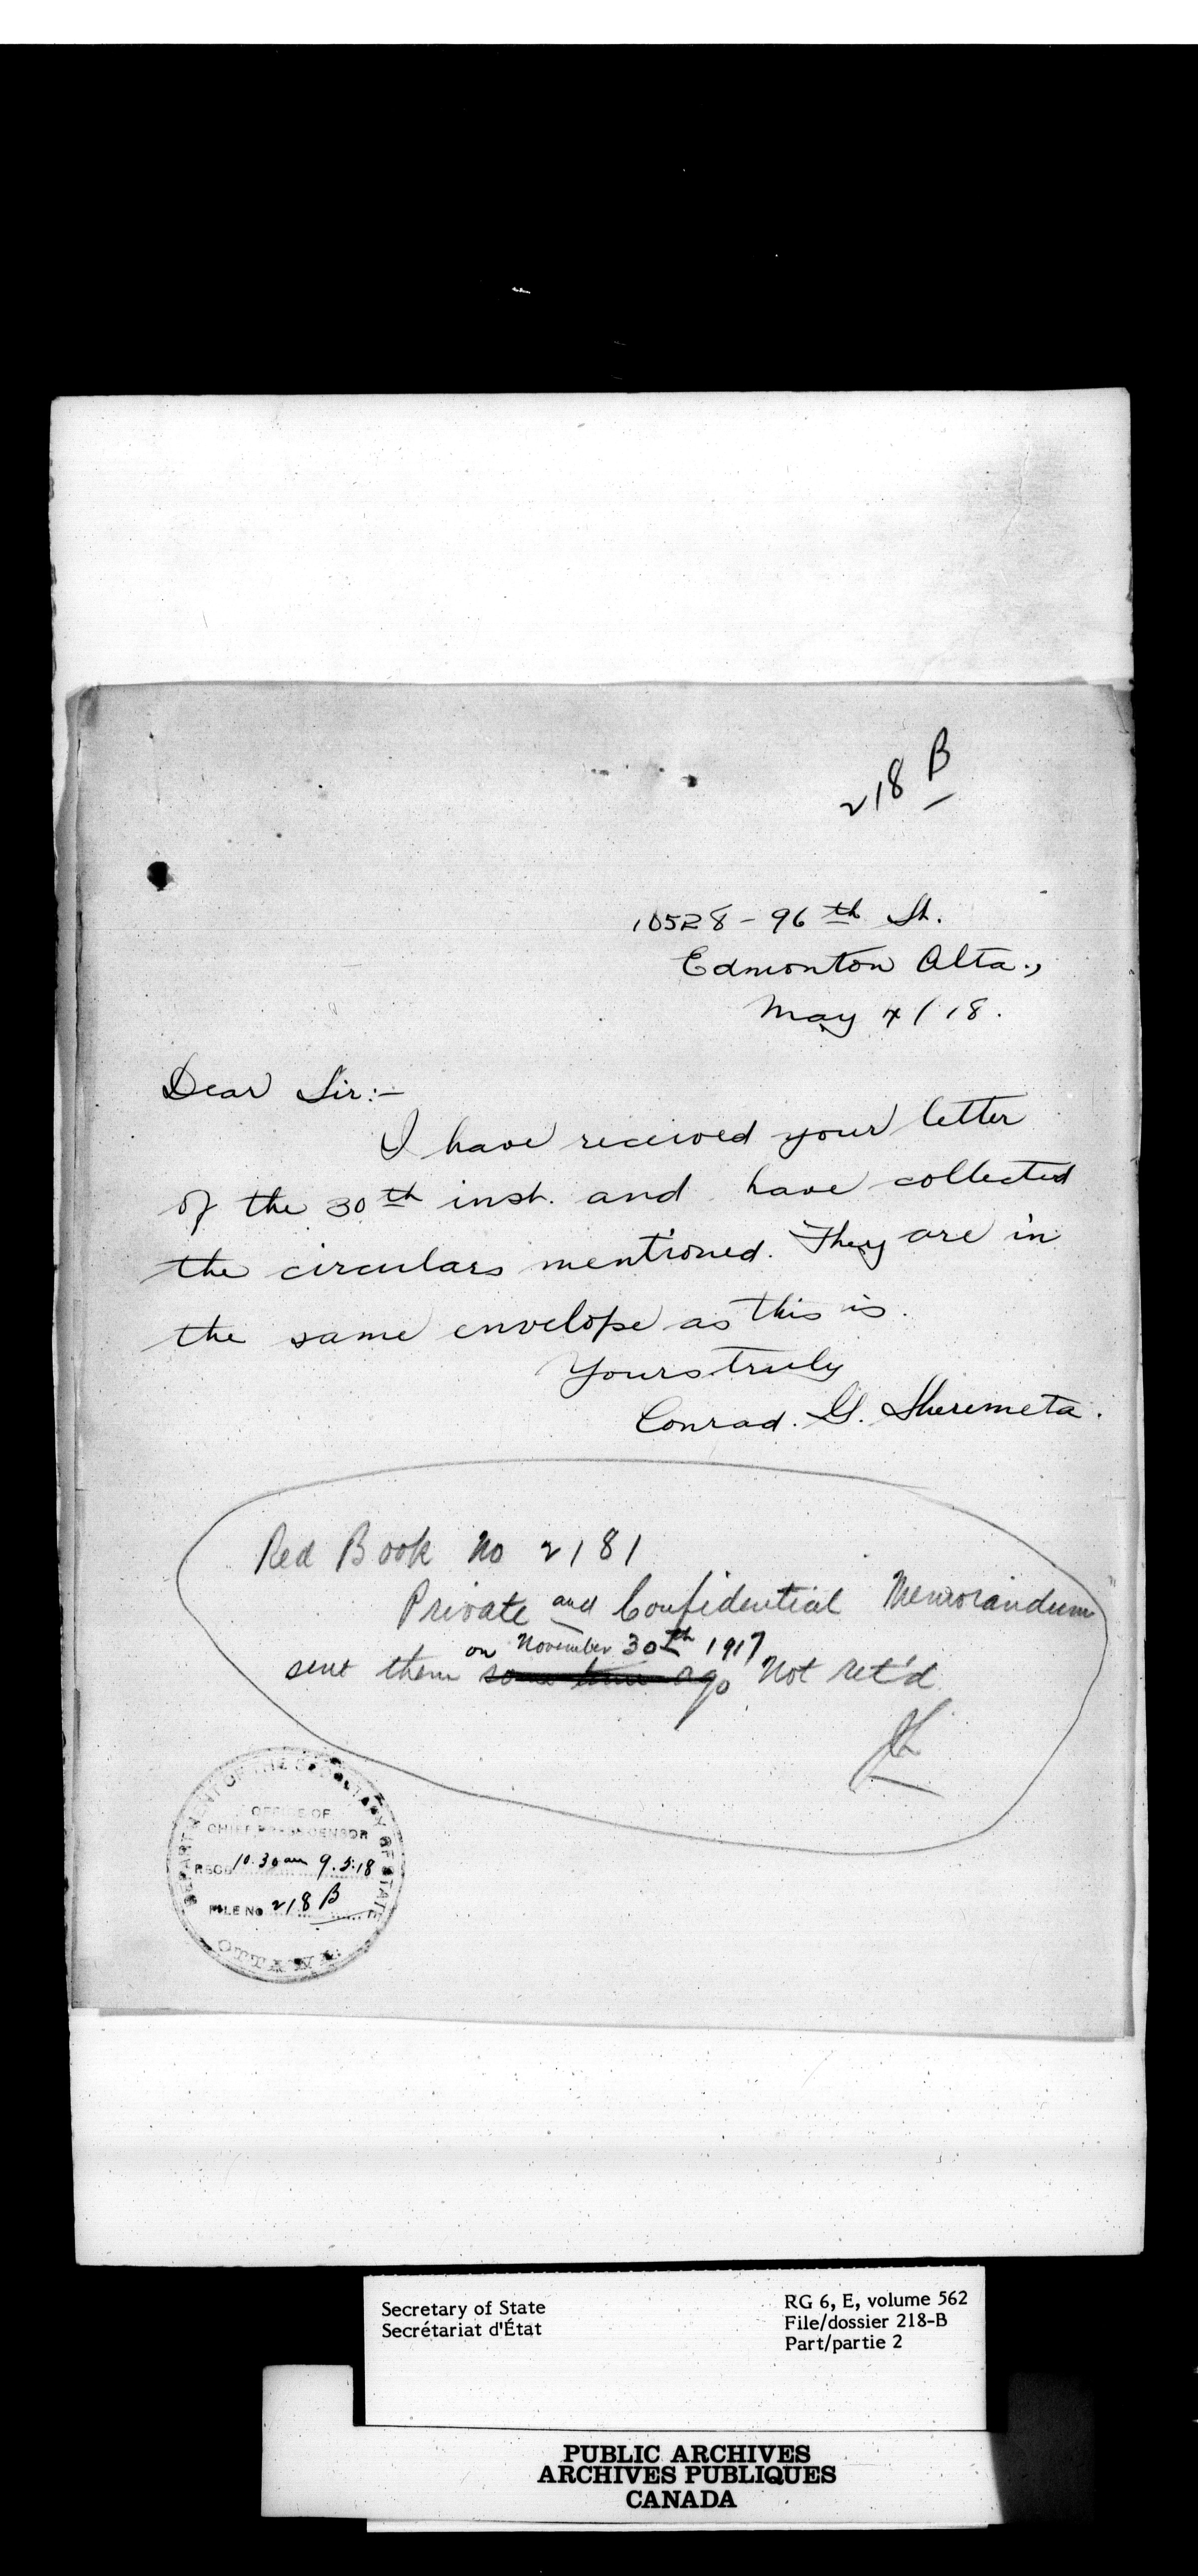 218 B
10528 - 96th St.
Edmonton Alta.,
May 4/18.
Dear Sir:-
I have received your letter
of the 30th inst. and have collected
the circulars mentioned. They are in
the same envelope as this is.
Yours truly
Conrad. G. Sheremeta.
Red Book No 2181
Private and Confidential Memorandum
on November 30th 1917
sent them some time ago Not ret'd
DEPARTMENT OF THE SECRETARY OF STATE
OFFICE OF
CHIEF PRESS CENSOR
RECD 10.30 am 9.5.18
FILE No 218 B
OTTAWA.
Secretary of State
Secrétariat d'État
RG 6, E, volume 562
File/dossier 218-B
Part/partie 2
PUBLIC ARCHIVES
ARCHIVES PUBLIQUES
CANADA